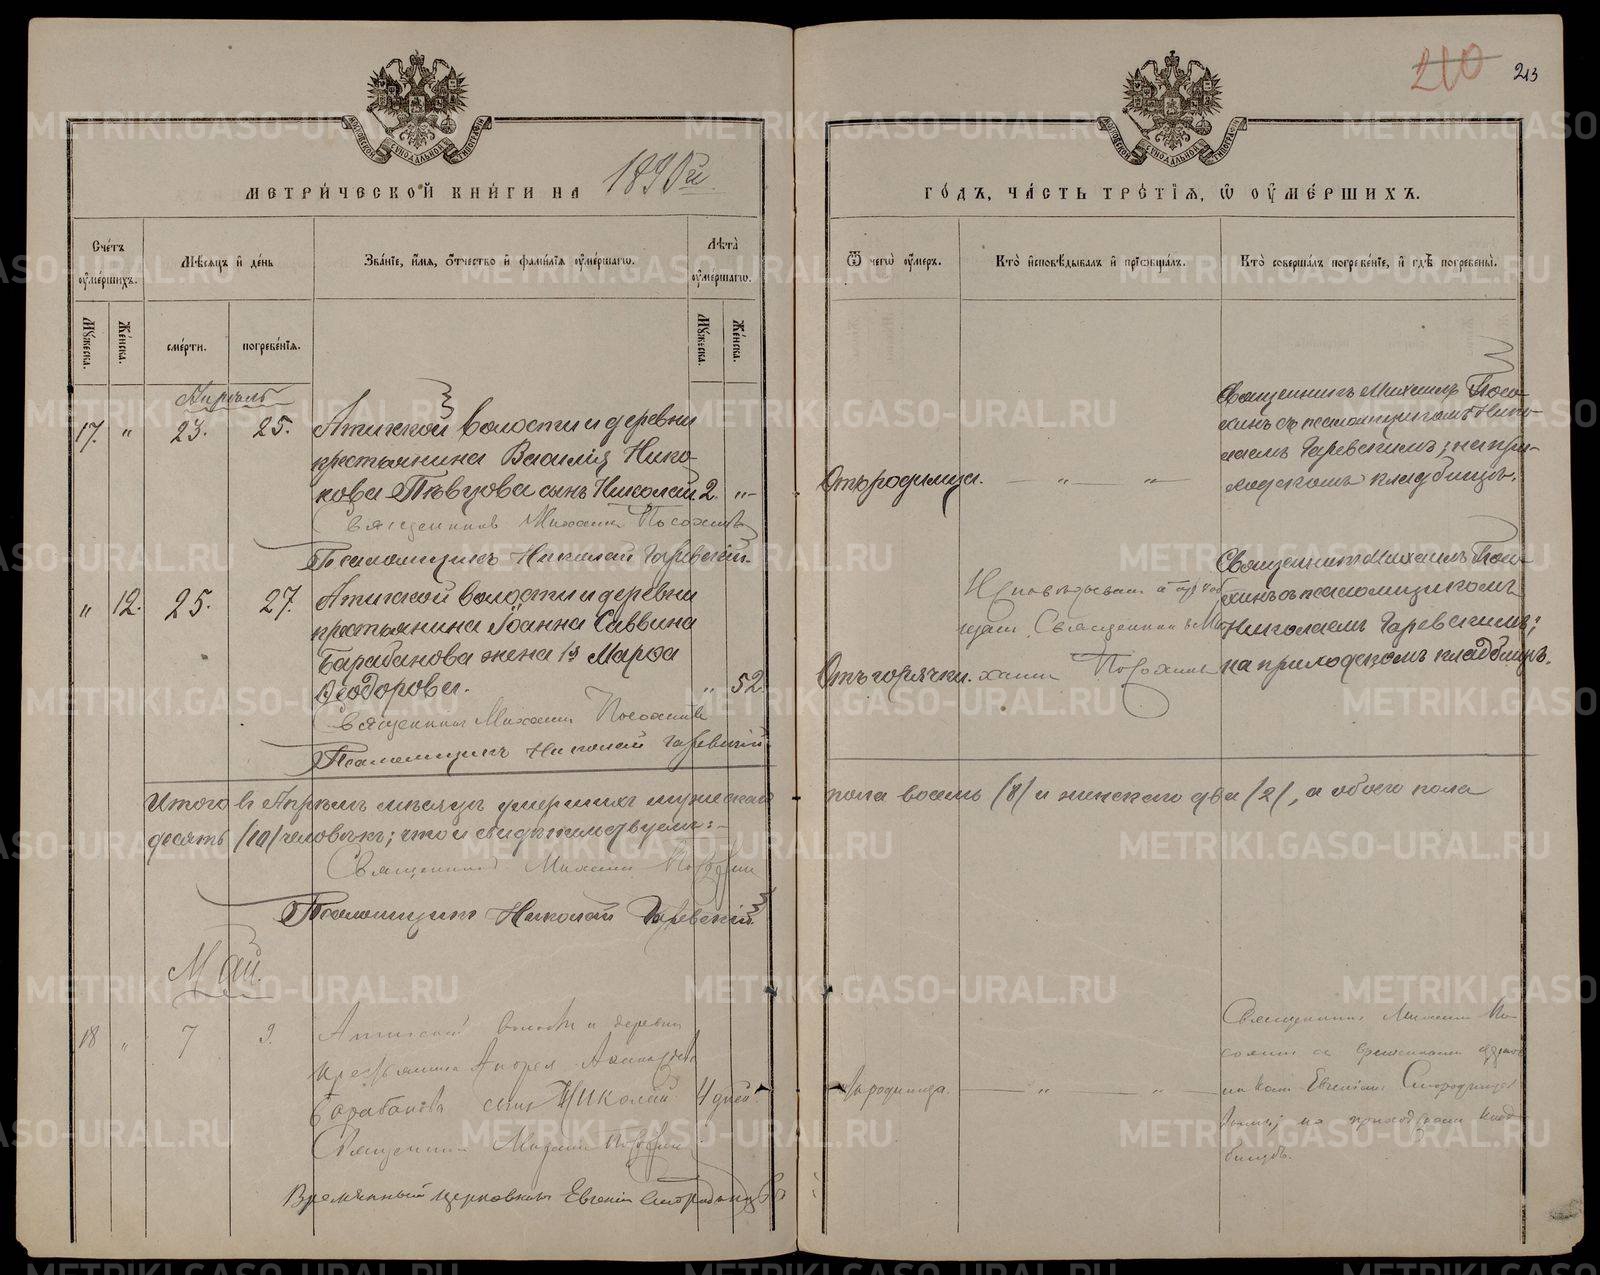 210
213
МЕТРИЧЕСКОЙ КНИГИ НА 1890й
ГОДЪ, ЧАСТЬ ТРЕТІЯ, Ѡ ОУМЕРШИХЪ.
Счетъ оумершихъ.
Мѣсяцъ и день
Званіе, имя, отчество и фамилія оумершагѡ.
Лѣта оумершагѡ.
Ѿ чегѡ оумеръ.
Кто исповѣдывалъ и пріѡбщалъ.
Кто совершалъ погребеніе, и гдѣ погребены.
Мужеска.
Женска.
смерти.
погребенія.
Мужеска.
Женска.
Апрѣль
17. " 23. 25.
Атижской волости и деревни
крестьянина Василія Нико-
нова Пѣвцова сынъ Николай 2. "
Священникъ Михаилъ Посохинъ
Псаломщикъ Николай
Отъ родимца. — " — "
Священникъ Михаилъ Посо-
хинъ съ псаломщикомъ Нико-
лаемъ на при-
ходскомъ кладбищѣ.
" 12. 25. 27.
Атижской волости и деревни
крестьянина Іоанна Саввина
Барабанова жена 1я Марѳа
Ѳеодорова. " 52
Священникъ Михаилъ Посохинъ
Псаломщикъ Николай
Отъ горячки.
Исповѣдывалъ и
щалъ Священникъ Ми-
хаилъ Посохинъ
Священникъ Михаилъ Посо-
хинъ съ псаломщикомъ
Николаемъ
на приходскомъ кладбищѣ.
Итого въ Апрѣлѣ мѣсяцѣ умершихъ мужескаго
пола восемь (8) и женскаго два (2), а обоего пола
десять (10) человѣкъ; что и свидѣтельствуемъ:-
Священникъ Михаилъ Посохинъ
Псаломщикъ Николай
Май.
18 " 7 9.
Атижской волости и деревни
крестьянина Андрея
Барабанова сынъ Николай 4 дней
Священникъ Михаилъ Посохинъ
Временный церковникъ Евгеній Смородинцевъ
родимца. — " — "
Священникъ Михаилъ По-
сохинъ съ временнымъ церков-
никомъ Евгеніемъ Смородинце-
вымъ; на приходскомъ клад-
бищѣ.
METRIKI.GASO-URAL.RU